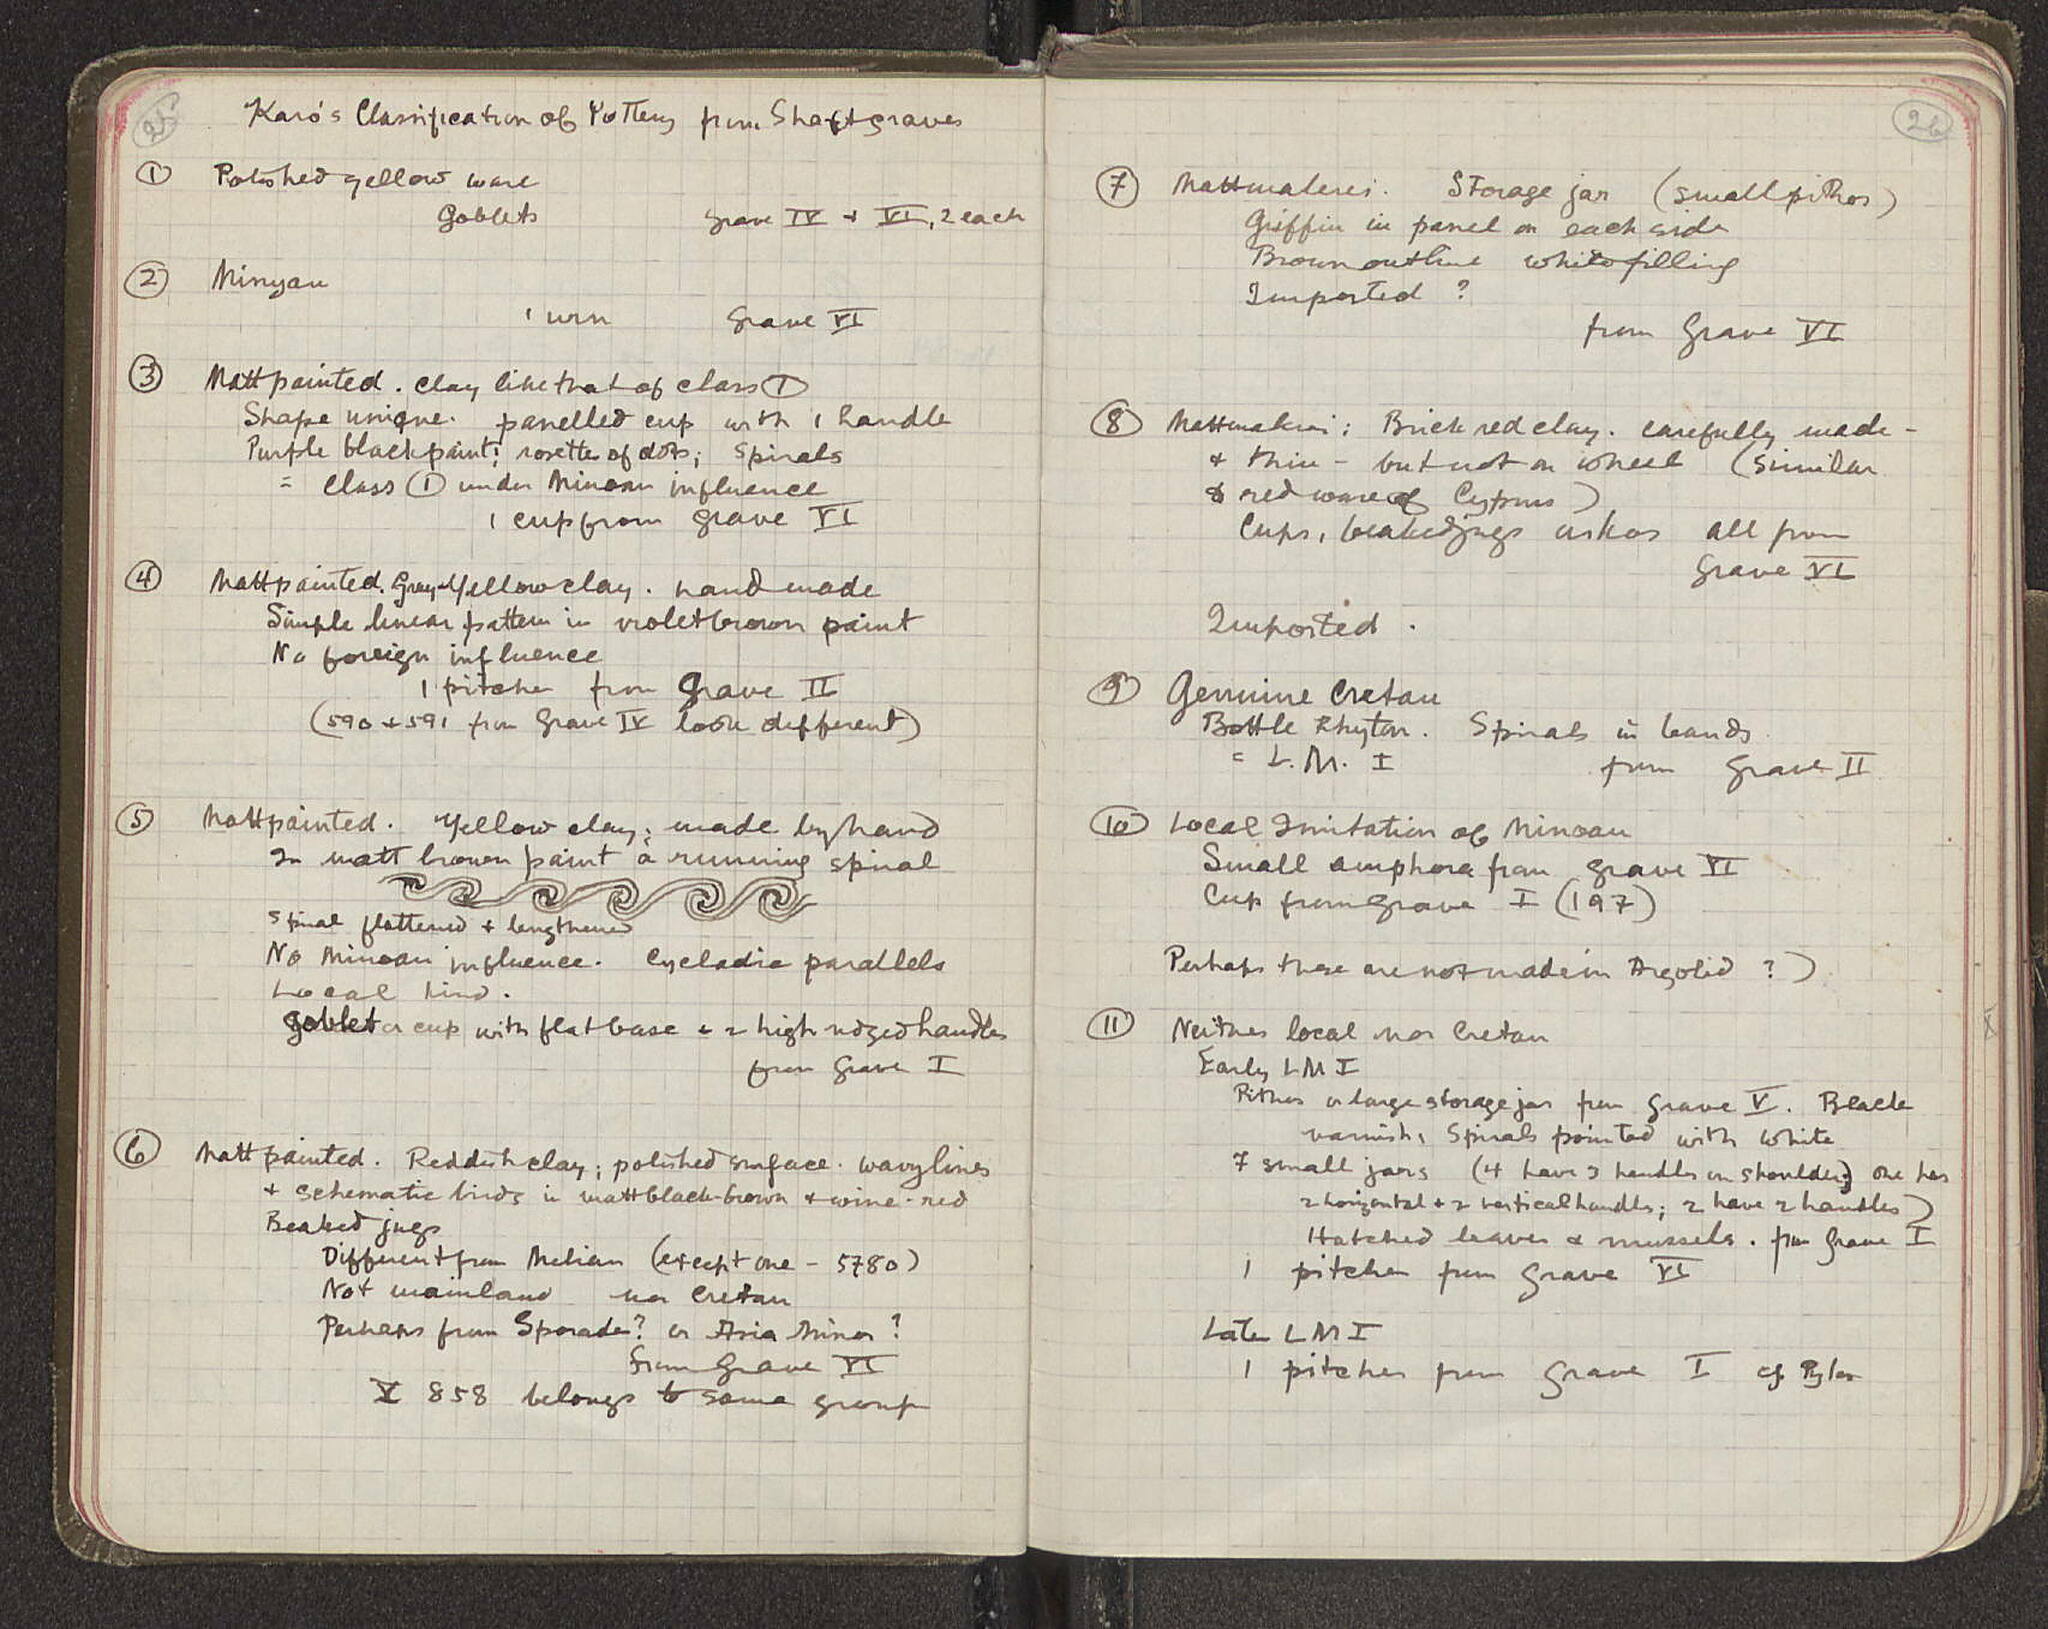 25
Karo's Classification of Pottery from Shaftgraves
① Polished yellow ware
Goblets Grave IV + VI, 2 each
② Minyan
1 urn Grave VI
③ Mattpainted. Clay like that of class ①
Shape unique. panelled cup with 1 handle
Purple black paint; rosette of dots; spirals
= class ① under Minoan influence
1 cup from Grave VI
④ Mattpainted. Gray-Yellow clay. hand made
Simple linear pattern in violet brown paint
No foreign influence
1 pitcher from Grave II
(590 + 591 from Grave IV look different)
⑤ Mattpainted. Yellow clay; made by hand
In matt brown paint a running spiral
spiral flattened + lengthened
No Minoan influence. Cycladic parallels
Local kind.
Goblet or cup with flat base + 2 high ridged handles
from Grave I
⑥ Mattpainted. Reddish clay; polished surface. wavy lines
+ schematic birds in matt black-brown + wine-red
Beaked jugs
Different from Melian (except one - 5780)
Not mainland nor Cretan
Perhaps from Sporades? or Asia Minor?
from Grave VI
V 858 belongs to same group
26
⑦ Mattmalerei. Storage jar (small pithos)
Griffin in panel on each side
Brown outline white filling
Imported ?
from Grave VI
⑧ Mattmalerei: Brick red clay. carefully made -
+ thin - but not on wheel (similar
to red ware of Cyprus)
Cups, beaked jugs askos all from
Grave VI
Imported.
⑨ Genuine Cretan
Bottle Rhyton. Spirals in bands
= L.M. I from Grave II
⑩ Local Imitation of Minoan
Small amphora from Grave VI
Cup from Grave I (197)
Perhaps these are not made in Argolid ?)
⑪ Neither local nor Cretan
Early LM I
Pithos or large storage jar from Grave V. Black
varnish, Spirals painted with white
7 small jars (4 have 3 handles on shoulder; one has
2 horizontal + 2 vertical handles; 2 have 2 handles)
Hatched leaves + mussels. from Grave I
1 pitcher from Grave VI
Late LM I
1 pitcher from Grave I cf. Pylos